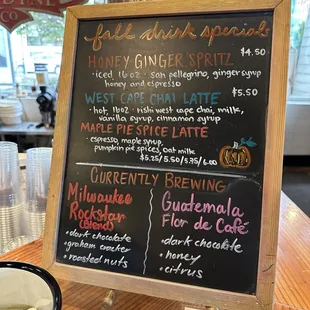 fall drink specials
HONEY GINGER SPRITZ $4.50
·iced, 16oz · san pellegrino, ginger syrup
honey and espresso
WEST CAPE CHAI LATTE $5.50
·hot, 16oz · rishi west cape chai, milk,
vanilla syrup, cinnamon syrup
MAPLE PIE SPICE LATTE
·espresso, maple syrup,
pumpkin pie spices, oat milk
$5.25/5.50/5.75/6.00
CURRENTLY BREWING
Milwaukee
Rockstar
(Blend)
·dark chocolate
·graham cracker
·roasted nuts
Guatemala
Flor de Café
·dark chocolate
·honey
·citrus